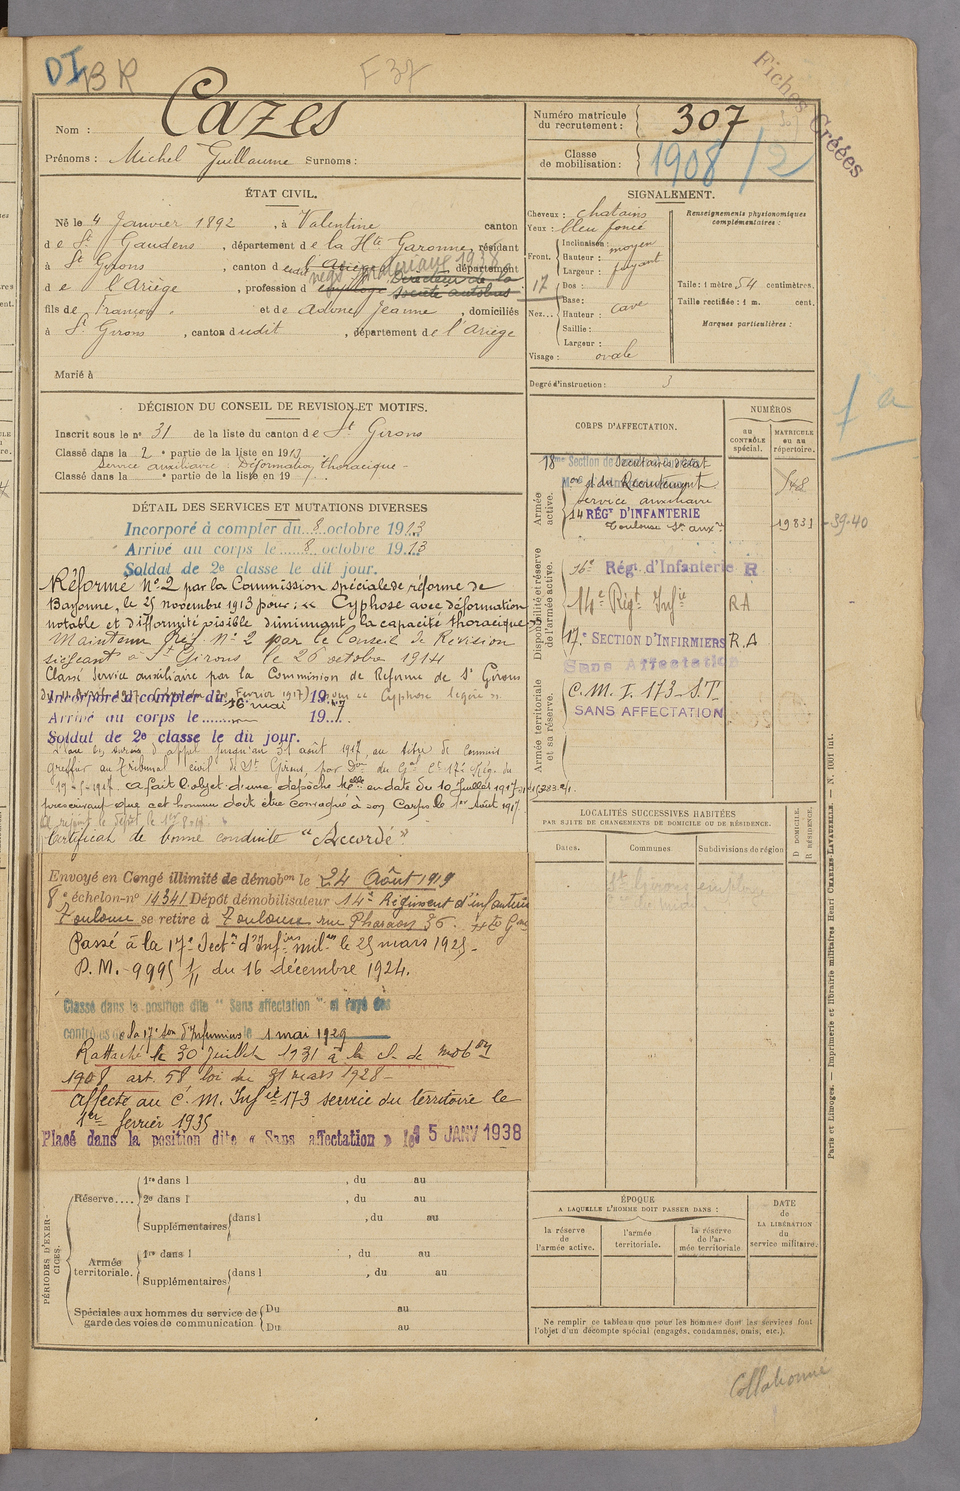 DI
BR
F37
Fiches Créées
Nom : Cazes
Prénoms : Michel Guillaume Surnoms :
Numéro matricule du recrutement : 307
Classe de mobilisation : 1908 /2
ÉTAT CIVIL.
Né le 4 Janvier 1892, à Valentine canton
de St Gaudens, département de la Hte Garonne, résidant
à St Girons, canton dudit département
de l'Ariège, profession d employé Directeur de la Société autobus
fils de François et de Adoue Jeanne, domiciliés
à St Girons, canton dudit, département de l'Ariège
Marié à
SIGNALEMENT.
Cheveux : chatains
Yeux : bleu foncé
Front. Inclinaison : moyen
Hauteur :
Largeur : fuyant
17
Nez... Dos :
Base :
Hauteur : cave
Saillie :
Largeur :
Visage : ovale
Renseignements physionomiques complémentaires :
Taille : 1 mètre 54 centimètres.
Taille rectifiée : 1 m. cent.
Marques particulières :
Degré d'instruction : 3
1 a
DÉCISION DU CONSEIL DE REVISION ET MOTIFS.
Inscrit sous le n° 31 de la liste du canton de St Girons
Classé dans la 2e partie de la liste en 1913
Service auxiliaire : Déformation thoracique -
Classé dans la e partie de la liste en 19
DÉTAIL DES SERVICES ET MUTATIONS DIVERSES
Incorporé à compter du 8 octobre 1913
Arrivé au corps le 8 octobre 1913
Soldat de 2e classe le dit jour.
Réformé N° 2 par la Commission spéciale de réforme de
Bayonne, le 25 novembre 1913 pour : "Cyphose avec déformation
notable et difformité visible diminuant la capacité thoracique"
Maintenu Réf. N° 2 par le Conseil de Révision
siégeant à St Girons le 26 octobre 1914
Classé Service auxiliaire par la Commission de Réforme de St Girons
Incorporé à compter du 16 mai 1917
Arrivé au corps le 19
Soldat de 2e classe le dit jour.
sursis d'appel jusqu'au 31 août 1917 au titre de Commis
Greffier au Tribunal civil de St Girons, par
a fait l'objet d'une dépêche elle en date du 10 Juillet 1917
prescrivant que cet homme doit être convoqué à son Corps le 1er Août 1917
Certificat de bonne conduite "Accordé"
Envoyé en Congé illimité de démobon le 24 Août 1919
8e échelon - n° 14341 Dépôt démobilisateur 14e Régiment d'infanterie
Toulouse se retire à Toulouse rue Pharaon 36. Hte Gne
Passé à la 17e Secton d'Infiers milres le 25 mars 1925 -
D.M. - 9995 1/11 du 16 décembre 1924.
Classé dans la position dite "Sans affectation" et rayé des
contrôles de la 17e Son d'Infirmiers le 1 mai 1929
Rattaché le 30 juillet 1931 à la cl. de mobon
1908 art. 58 loi du 31 mars 1928 -
Affecté au C.M. Infie 173 service du territoire le
1er février 1935
Placé dans la position dite « Sans affectation » le 15 JANV 1938
CORPS D'AFFECTATION.
NUMÉROS
au CONTRÔLE spécial.
MATRICULE ou au répertoire.
Armée active.
18me Section de Secrétaires d'état
Mor et du Recrutement
Service auxiliaire
548
14 RÉGt D'INFANTERIE
Toulouse St auxre
19831
39-40
Disponibilité et réserve de l'armée active.
16e Régt. d'Infanterie R
14e Régt Infie RA
17e SECTION D'INFIRMIERS R.A
Sans Affectation
Armée territoriale et sa réserve.
C.M.I. 173 - S.T.
SANS AFFECTATION
LOCALITÉS SUCCESSIVES HABITÉES
PAR SUITE DE CHANGEMENTS DE DOMICILE OU DE RÉSIDENCE.
D DOMICILE.
R RÉSIDENCE.
Dates.
Communes
Subdivisions de région
St Girons
PÉRIODES D'EXERCICES.
Réserve....
1re dans l , du au
2e dans l , du au
Supplémentaires dans l , du au
Armée territoriale.
1re dans l , du au
Supplémentaires dans l , du au
Spéciales aux hommes du service de garde des voies de communication
Du au
Du au
ÉPOQUE
A LAQUELLE L'HOMME DOIT PASSER DANS :
la réserve de l'armée active.
l'armée territoriale.
la réserve de l'armée territoriale
DATE de LA LIBÉRATION du service militaire.
Ne remplir ce tableau que pour les hommes dont les services font
l'objet d'un décompte spécial (engagés, condamnés, omis, etc.).
Paris et Limoges. — Imprimerie et librairie militaires Henri CHARLES-LAVAUZELLE. — N. 1001 int.
Collationné